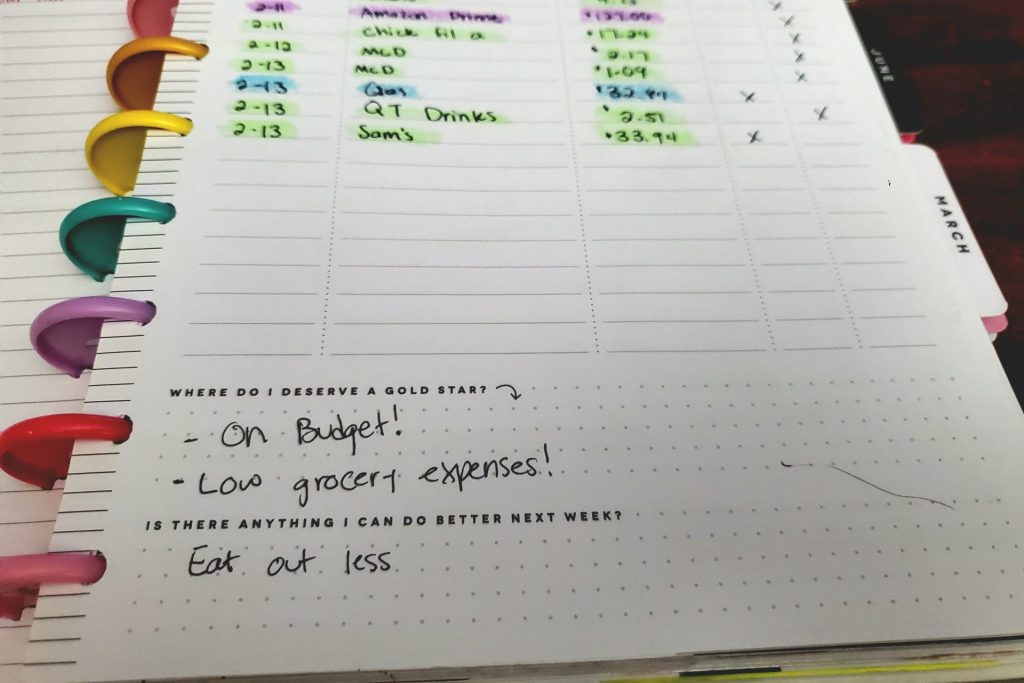 2-11 Amazon Prime
2-11 Chick fil a $17.24
2-12 McD $2.17
2-13 McD $1.09
2-13 Gas x
2-13 QT Drinks $2.51 x
2-13 Sam's $33.94 x
JUNE
MARCH
WHERE DO I DESERVE A GOLD STAR?
- On Budget!
- Low grocery expenses!
IS THERE ANYTHING I CAN DO BETTER NEXT WEEK?
Eat out less